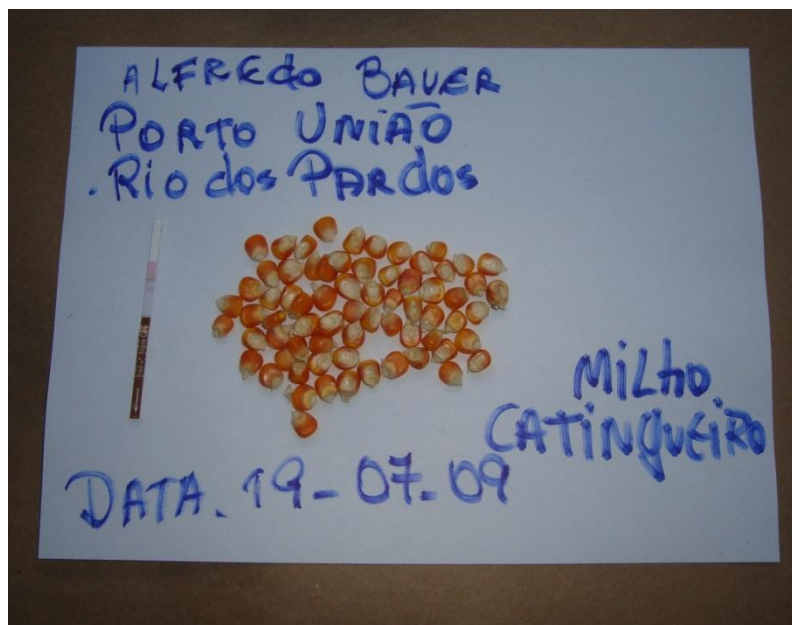 ALFREdo BAUER
PORTO UNIÃO
.Rio dos PARdos
MiLho
CATiNgUEiRO
DATA. 19-07-09